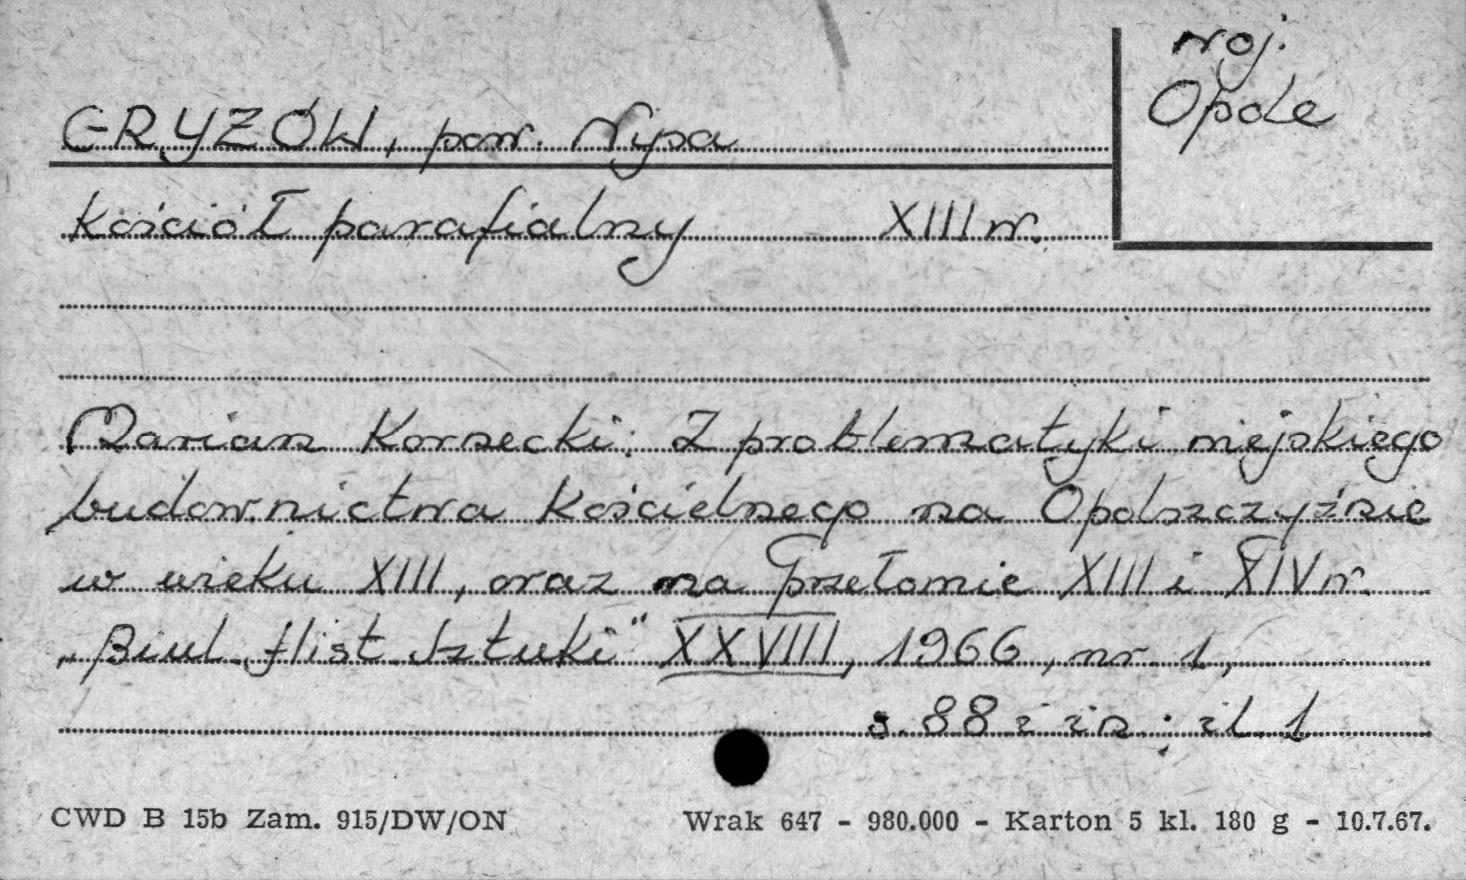 woj.
Opole
GRYZÓW, pow. Nysa
kościół parafialny XIII w.
Marian Kornecki: Z problematyki miejskiego
budownictwa kościelnego na Opolszczyźnie
w wieku XIII, oraz na przełomie XIII i XIV w.
„Biul. Hist. Sztuki" XXVIII, 1966, nr 1,
s. 88 i in.; il. 1
CWD B 15b Zam. 915/DW/ON Wrak 647 - 980.000 - Karton 5 kl. 180 g - 10.7.67.